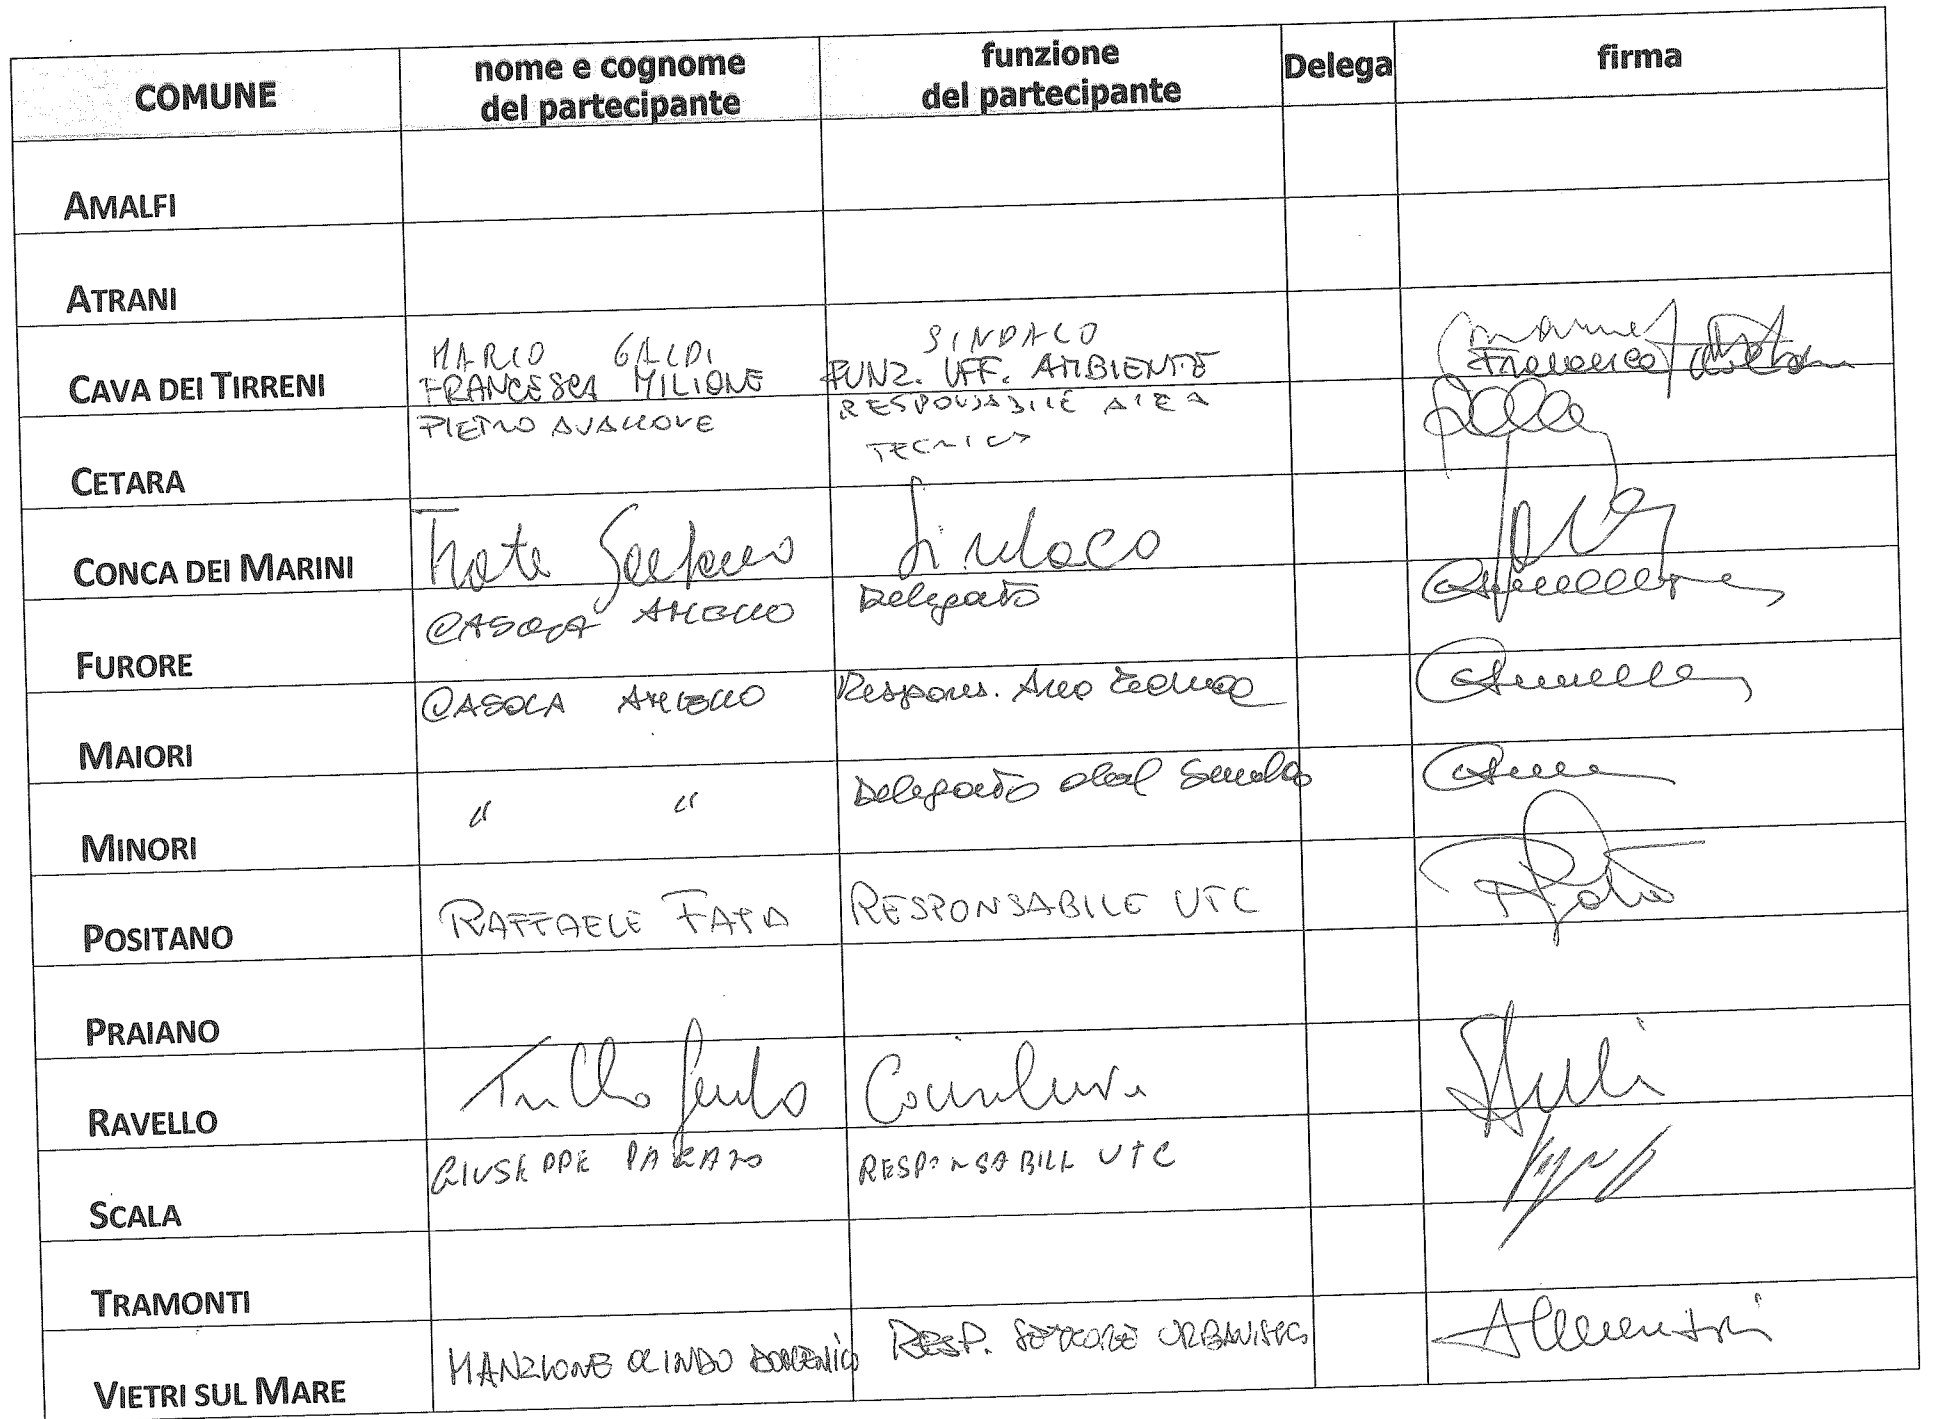 COMUNE
nome e cognome
del partecipante
funzione
del partecipante
Delega
firma
AMALFI
ATRANI
CAVA DEI TIRRENI
MARCO GALDI
FRANCESCA MILIONE
SINDACO
FUNZ. UFF. AMBIENTE
Francesca
CETARA
PIETRO AVALLONE
RESPONSABILE AREA
TECNICA
CONCA DEI MARINI
Frate Gaetano
Sindaco
FURORE
CASOLA AMELIO
Delegato
MAIORI
CASOLA AMELIO
Respons. Area Tecnica
MINORI
" "
Delegato dal Sindaco
POSITANO
RAFFAELE FATA
RESPONSABILE UTC
PRAIANO
RAVELLO
SCALA
GIUSEPPE
RESPONSABILE UTC
TRAMONTI
VIETRI SUL MARE
MANZIONE OLINDO DOMENICO
RESP. SETTORE URBANISTICA